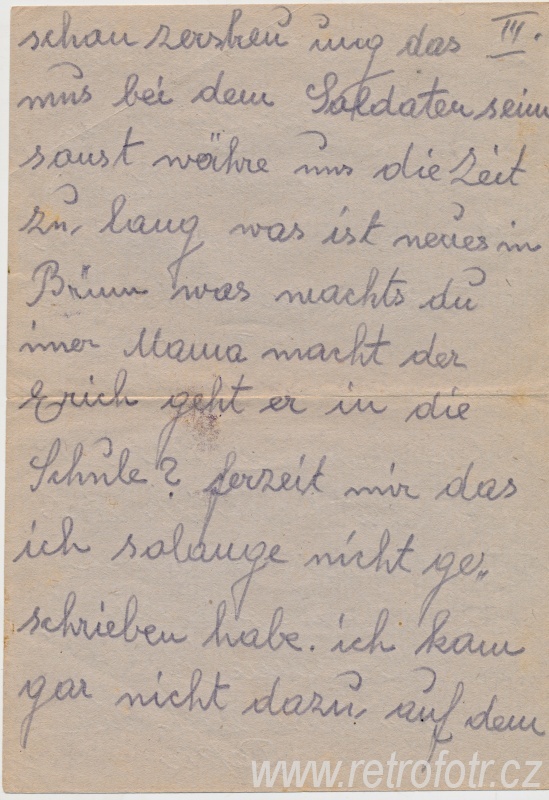 schon zerstreu ung das III.
mus bei dem Soldaten sein
sonst währe uns die Zeit
zu lang was ist neues in
Brünn was machts du
imer Mama macht der
Erich geht er in die
Schule? ferzeit mir das
ich solange nicht ge„
schrieben habe. ich kam
gar nicht dazu, auf dem
www.retrofotr.cz